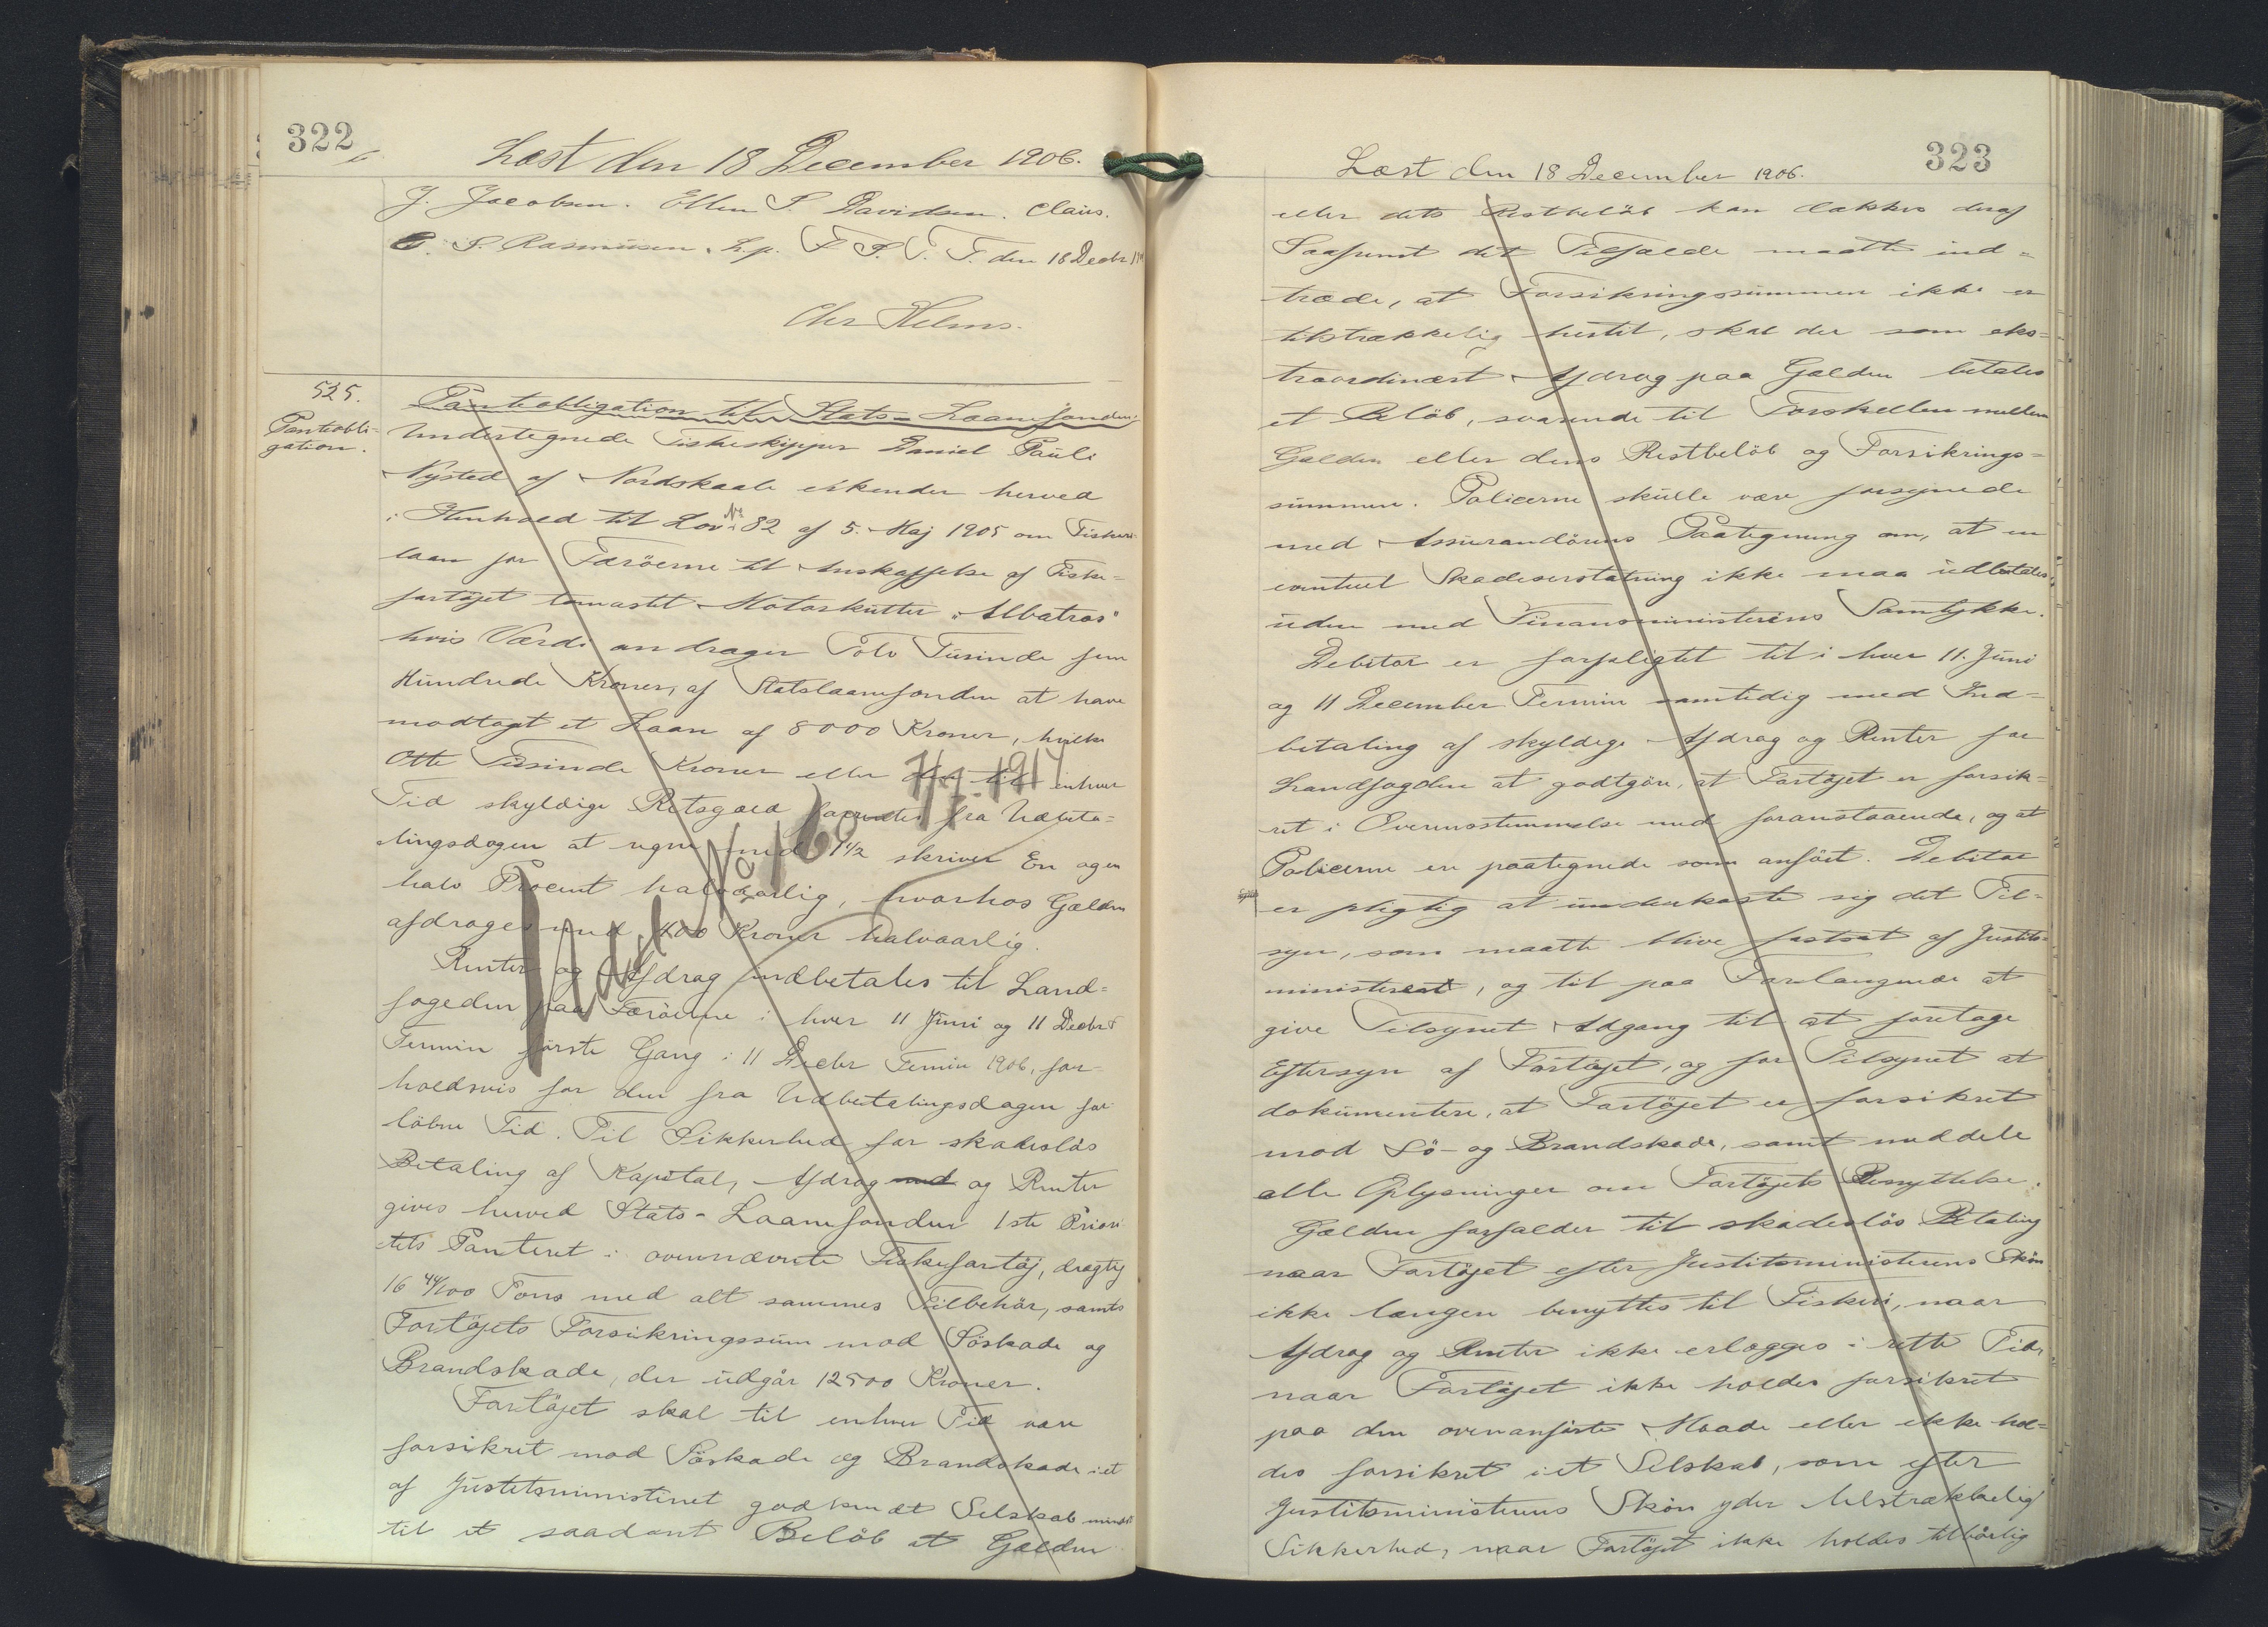 322
Læst den 18 December 1906.
J. Jacobsen. Ellen S. Davidsen. Claus.
S. Rasmussen. L. p. F. P. T. F. den 18 Decbr
Chr Helms.
525.
Panteobli-
gation.
Panteobligation til Stats-Laanefonden.
Undertegnede Fiskeskipper Daniel Pauli
Nysted af Nordskaale erkender herved
i Henhold til Lov No 82 af 5. Maj 1905 om Fiskeri-
laan for Færöerne til Anskaffelse af Fiske-
fartöjet tomastet Motorkutter "Albatros"
hvis Værdi andrager Tolv Tusinde fem
Hundrede Kroner, af Statslaanefonden at have
modtaget et Laan af 8000 Kroner, hvilke
Otte Tusinde Kroner eller det til enhver
Tid skyldige Restgæld forrentes fra Udbeta-
lingsdagen at regne med 1 1/2 skriver En og en
halv Procent halvaarlig, hvorhos Gælden
afdrages med 400 Kroner halvaarlig.
Renter og Afdrag indbetales til Land-
fogeden paa Færöerne i hver 11 Juni og 11 Decbr
Termin förste Gang i 11 Decbr Termin 1906, for-
holdsvis for den fra Udbetalingsdagen for-
löbne Tid. Til Sikkerhed for skadeslös
Betaling af Kapital, Afdrag med og Renter
gives herved Stats-Laanefonden 1ste Priori
tets Panteret i ovennævnte Fiskefartöj, drægtig
16 44/100 Tons med alt sammes Tilbehör, samt
Fartöjets Forsikringssum mod Söskade og
Brandskade, der udgår 12500 Kroner.
Fartöjet skal til enhver Tid være
forsikret mod Söskade og Brandskade i et
af Justitsministeriet godkendt Selskab mindst
til et saadant Belöb at Gælden
7/7-1914
323
Læst den 18 December 1906.
eller dets Restbelöb kan dækkes deraf
Saafremt det Tilfælde maatte ind-
træde, at Forsikringssummen ikke er
tilstrækkelig hertil, skal der som eks-
traordinært Afdrag paa Gælden betales
et Belöb, svarende til Forskellen mellem
Gælden eller dens Restbelöb og Forsikrings-
summen. Policerne skulle være forsynede
med Assurandörens Paategning om, at en
eventuel Skadeserstatning ikke maa udbetales
uden med Finansministeriens Samtykke.
Debitor er forpligtet til i hver 11. Juni
og 11 December Termin samtidig med Ind-
betaling af skyldige Afdrag og Renter for
Landfogden at godtgöre, at Fartöjet er forsik-
ret i Overensstemmelse med foranstaaende, og at
Policerne er paategnede som anfört. Debitor
er pligtig at underkaste sig det Til-
syn, som maatte blive fastsat af Justits-
ministeriet, og til paa Forlangende at
give Tilsynet Adgang til at foretage
Eftersyn af Fartöjet, og for Tilsynet at
dokumentere, at Fartöjet er forsikret
mod Sö- og Brandskade, samt meddele
alle Oplysninger om Fartöjets Benyttelse.
Gælden forfalder til skadeslös Betaling
naar Fartöjet efter Justitsministerens Skön
ikke længer benyttes til Fiskeri, naar
Afdrag og Renter ikke erlægges i rette Tid,
naar Fartöjet ikke holdes forsikret
paa den ovenanförte Maade eller ikke hol-
des forsikret i et Selskab, som efter
Justitsministerens Skön yder tilstrækkelig
Sikkerhed, naar Fartöjet ikke holdes tilbörlig